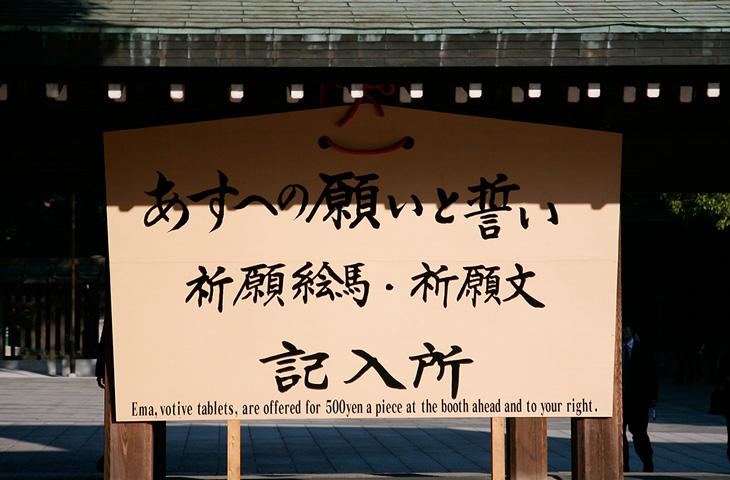 あすへの願いと誓い
祈願絵馬・祈願文
記入所
Ema, votive tablets, are offered for 500yen a piece at the booth ahead and to your right.